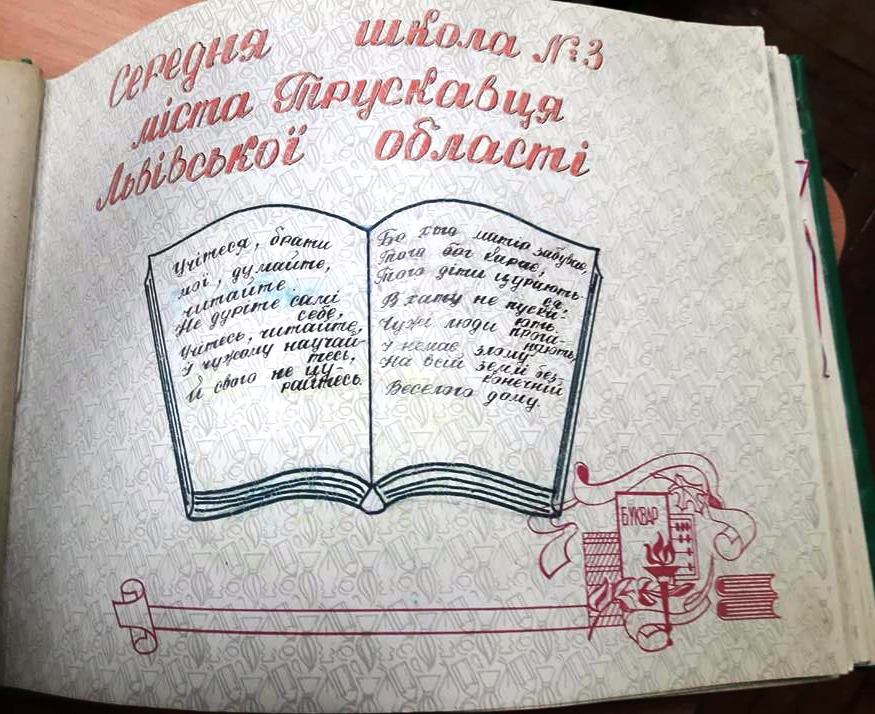 Середня школа №3
міста Трускавця
Львівської області
Учітеся, брати
мої, думайте,
читайте.
Не дуріте самі
себе,
Учтесь, читайте,
У чужому научай-
тесь,
Й свого не цу-
райтесь.
Бо хто матір забуває,
Того бог карає,
Того діти цурають-
ся,
В хату не пуска-
ють.
Чужі люди прога-
няють,
У немає злому
На всій землі без-
конечній
Веселого дому.
БУКВАР